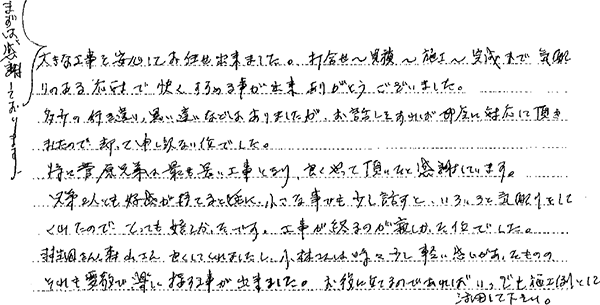 まずは、感謝しております。
大きな工事を安心してお任せ出来ました。打合せ〜見積〜施工〜完成まで気配
りのある応対で快くすすめる事が出来ありがとうございました。
多少の行き違い、思い違いなどはありましたが、お話しをすれば即座に対応して頂き
ましたので却って申し訳ない位でした。
特に菅原兄弟は最も長い工事となり、良くやって頂いたと感謝しています。
兄弟2人とも好感が持てると共に、小さな事でも少し話すと、いろいろと気配りをして
くれたのでとっても嬉しかったです。工事が終るのが寂しかった位でした。
さん、森山さん良くしてくれましたし、小林さんは時々少し軽い感じがあったものの
それも愛敬で楽しく接する事が出来ました。お役に立てるのであればいつでも施工例として
活用して下さい。